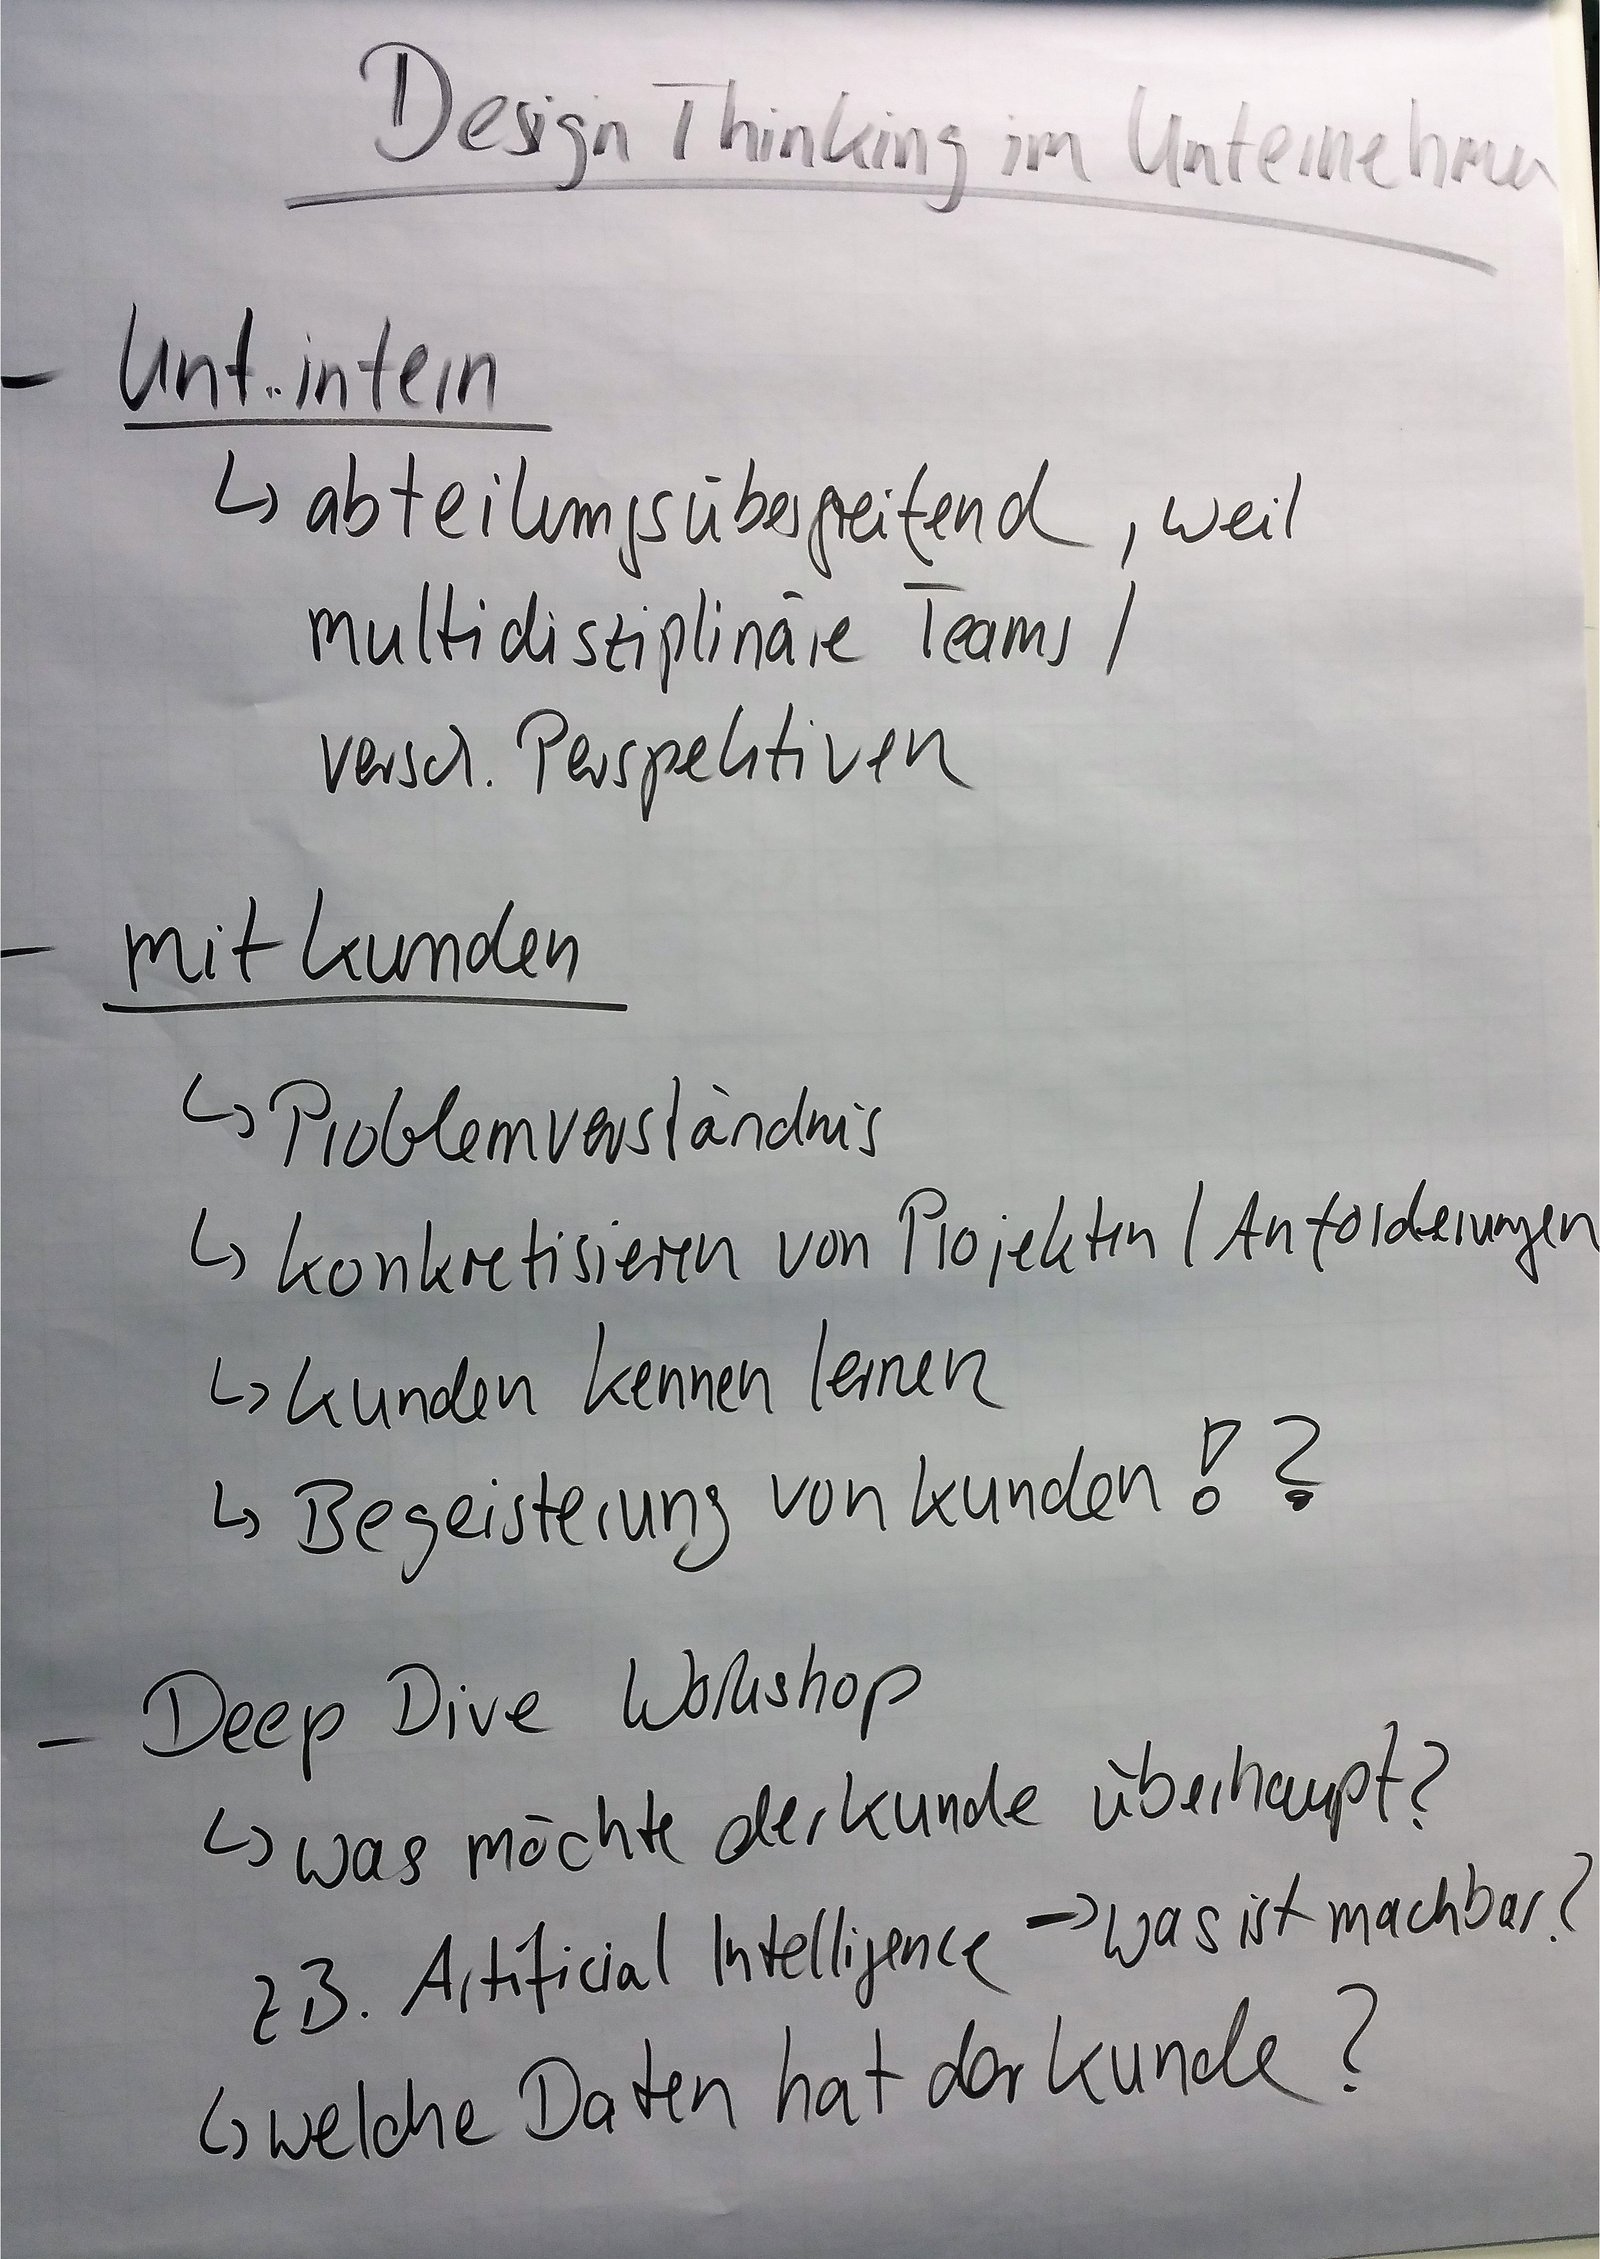 Design Thinking im Unternehmen
- Unt.intern
↳ abteilungsübergreifend, weil
multidisziplinäre Teams /
versch. Perspektiven
- mit Kunden
↳ Problemverständnis
↳ Konkretisieren von Projekten / Anforderungen
↳ Kunden kennen lernen
↳ Begeisterung von Kunden! ?
- Deep Dive Workshop
↳ was möchte der Kunde überhaupt?
z B. Artificial Intelligence → was ist machbar?
↳ welche Daten hat der Kunde?